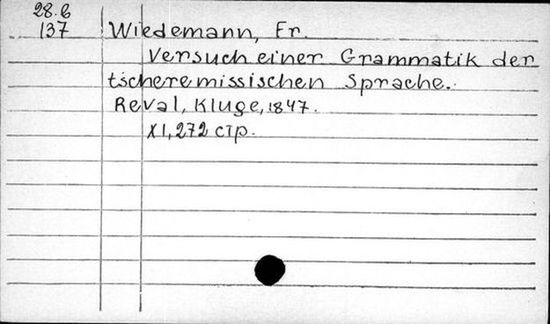 28.6
137
Wiedemann, Fr.
Versuch einer Grammatik der
tscheremissischen Sprache.
Reval, Kluge, 1847.
XI, 272 стр.